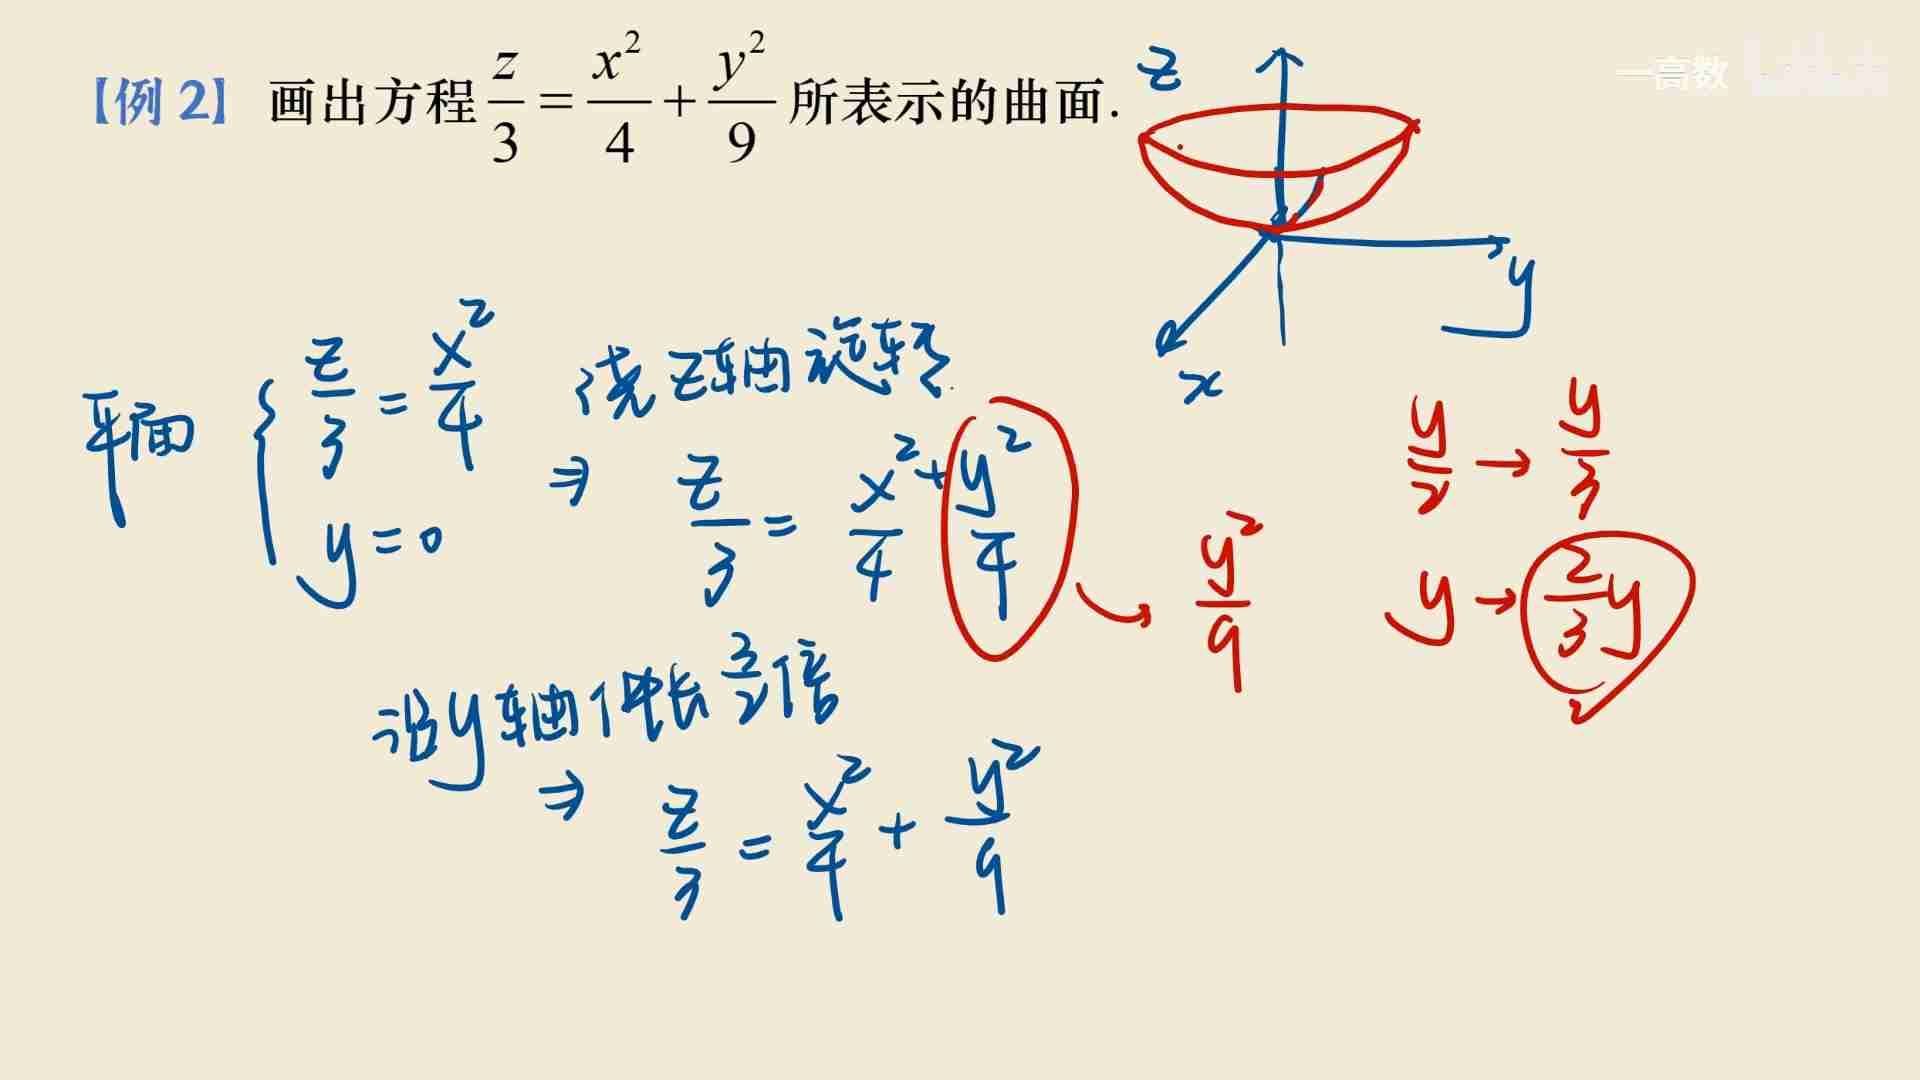 【例2】 画出方程 z/3 = x²/4 + y²/9 所表示的曲面.
一高数
z
y
x
平面 { z/3 = x²/4
y = 0
绕z轴旋转
⇒ z/3 = x²/4 + y²/4
→ y²/9
y/2 → y/3
y → 2/3 y
沿y轴伸长 3/2 倍
⇒ z/3 = x²/4 + y²/9